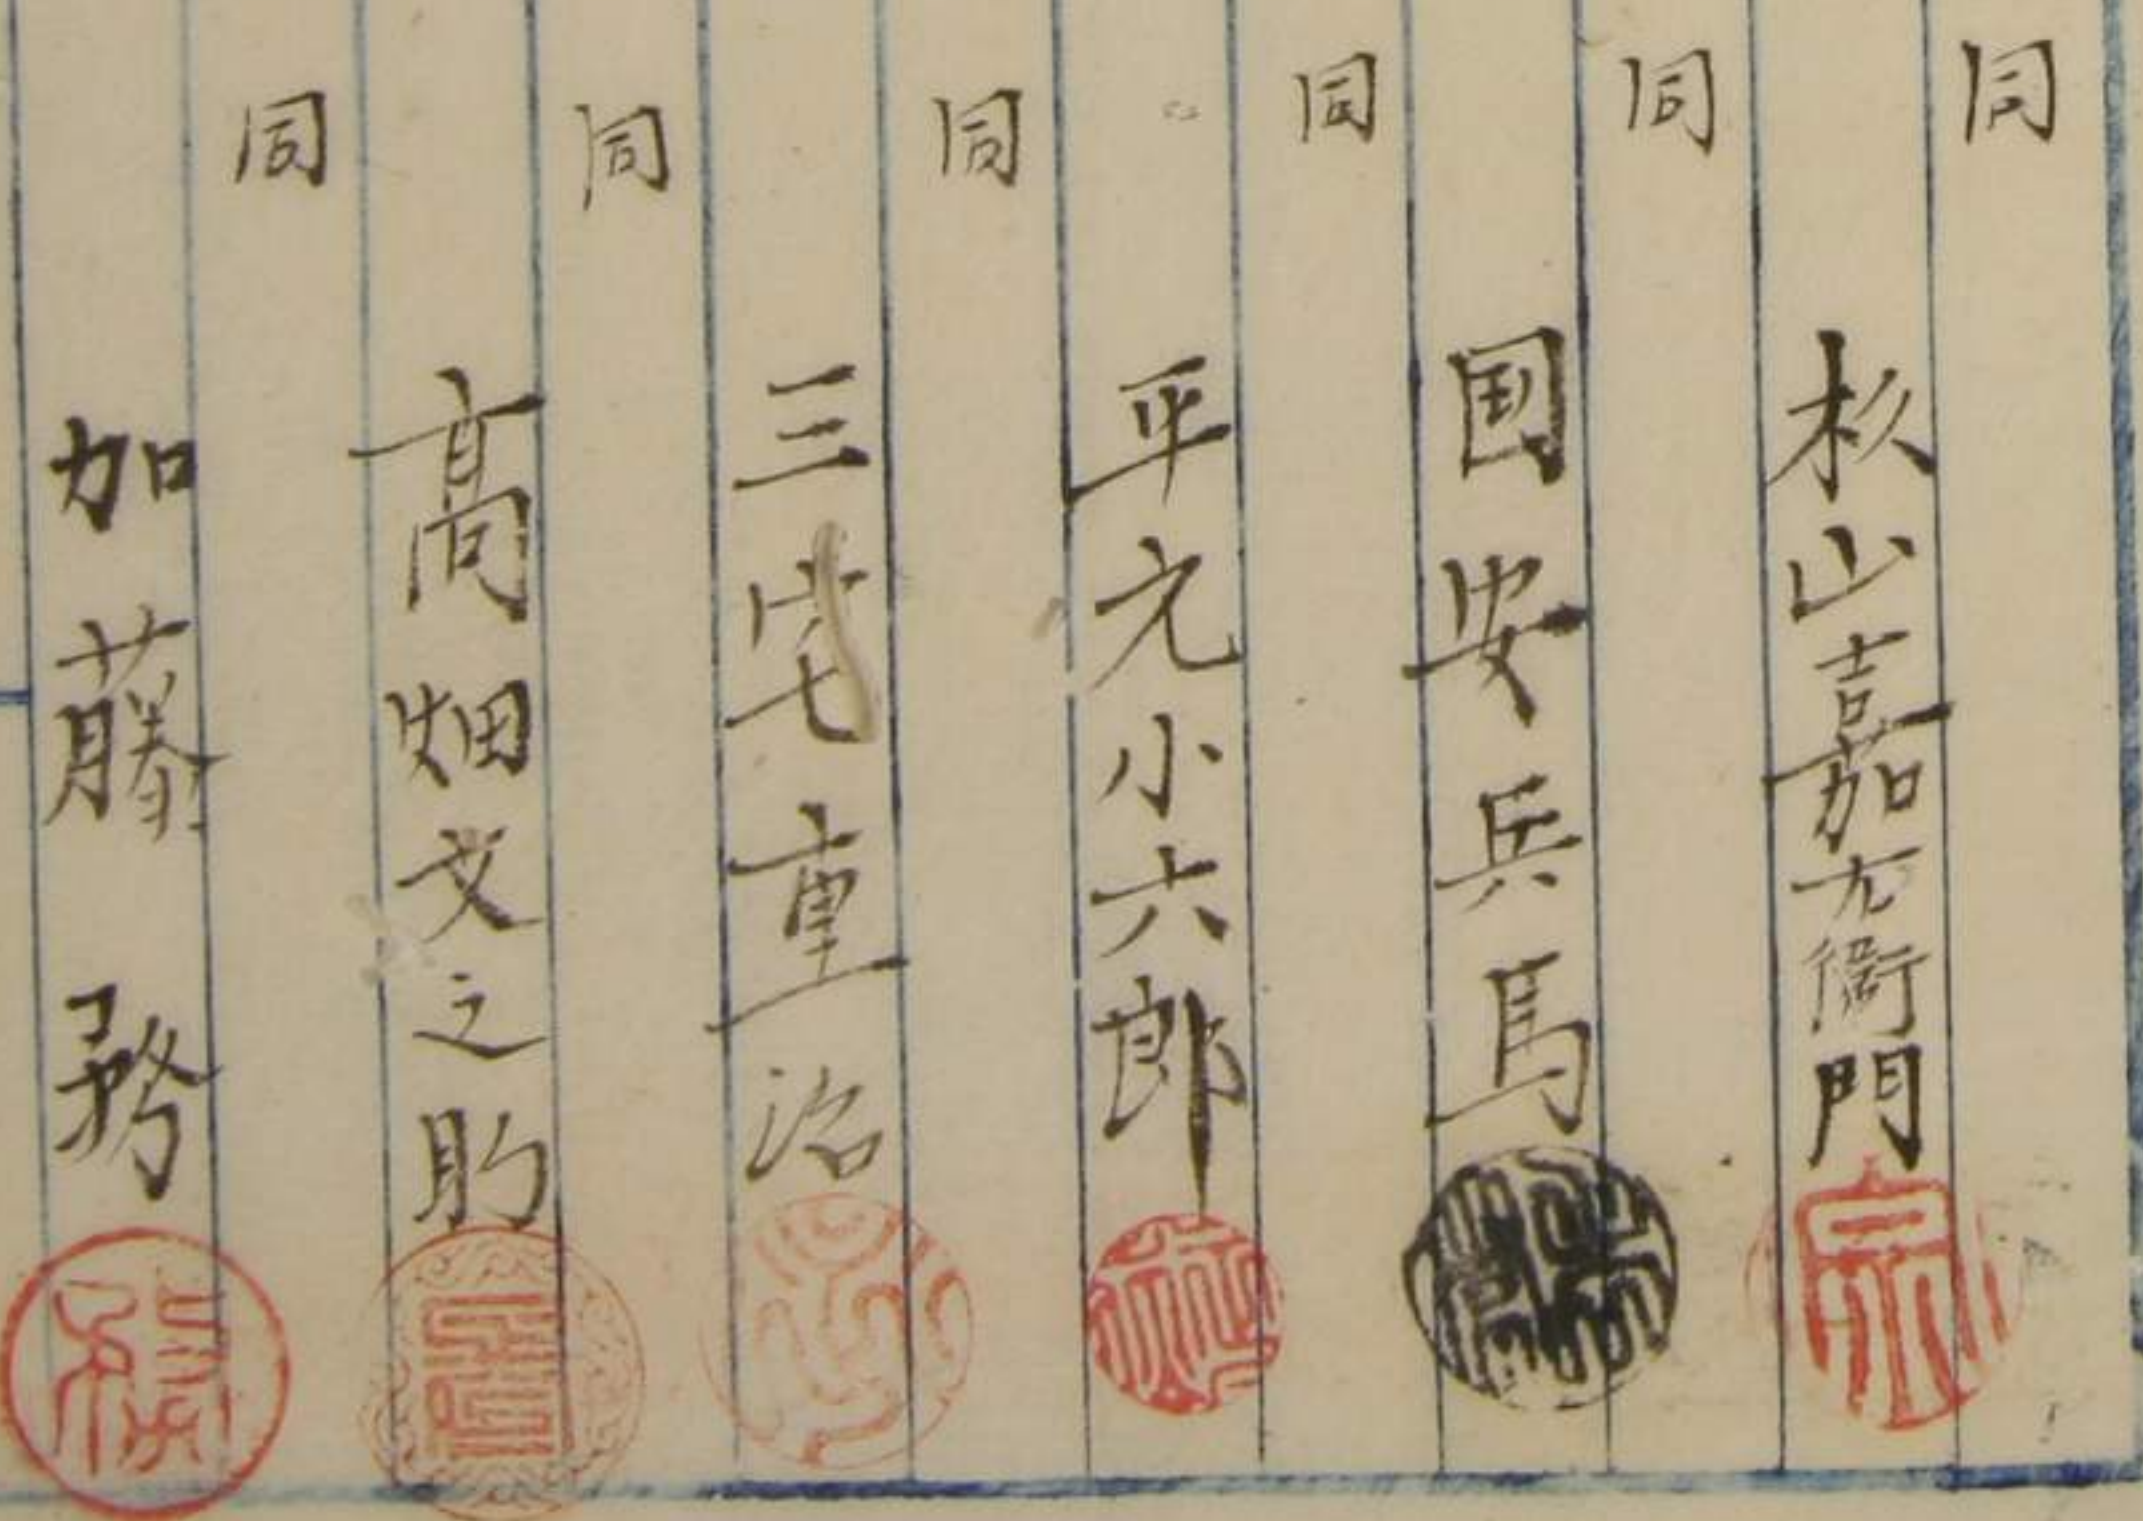 同
杉山嘉左衛門
同
国安兵馬
同
平元小六郎
同
三宅重治
同
高畑文之助
同
加藤務